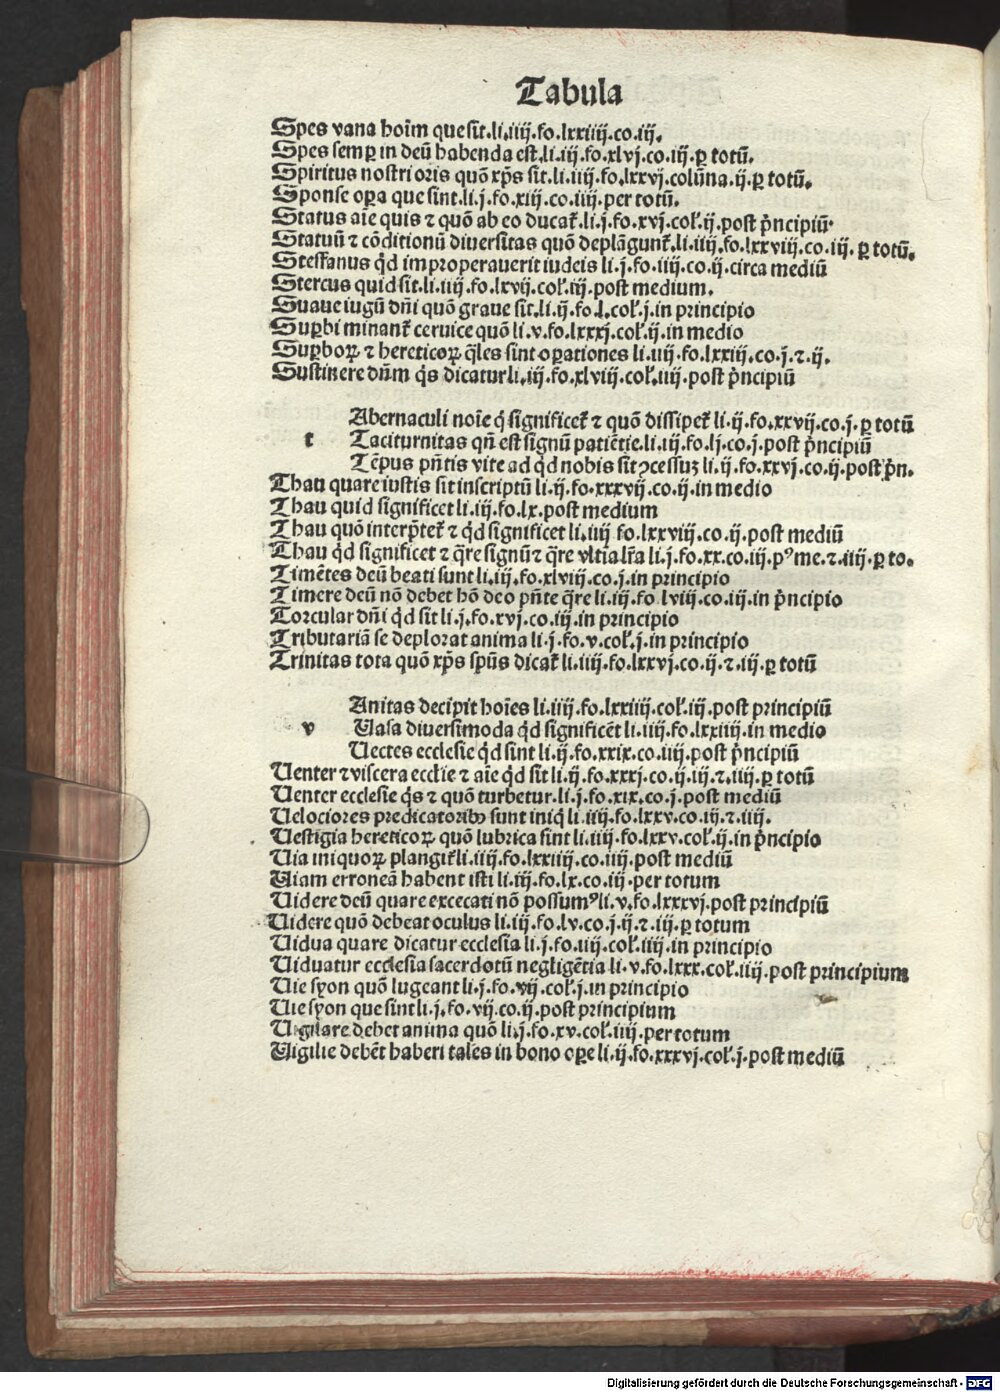 Tabula
Spes vana hoīm que sit.li.iiij.fo.lxxiiij.co.iij.
Spes semꝑ in deū habenda est.li.iij.fo.xlvj.co.iij.ꝑ totū.
Spiritus nostri oris quō xp̄s sit.li.iiij.fo.lxxvj.colūna.ij.ꝑ totū.
Sponse oꝑa que sint.li.j.fo.xiij.co.iiij.per totū.
Status aīe quis ⁊ quō ab eo ducat᷑.li.j.fo.xvj.col̕.ij.post pͥncipiū.
Statuū ⁊ cōditionū diuersitas quō deplāgunt᷑.li.iiij.fo.lxxviij.co.iij.ꝑ totū.
Steffanus qͥd improperauerit iudeis li.j.fo.iiij.co.ij.circa mediū
Stercus quid sit.li.iiij.fo.lxvij.col̕.iij.post medium.
Suaue iugū dn̄i quō graue sit.li.ij.fo.l.col̕.j.in principio
Suꝑbi minant᷑ ceruice quō li.v.fo.lxxxj.col̕.ij.in medio
Suꝑboꝝ ⁊ hereticoꝝ q̄les sint oꝑationes li.iiij.fo.lxxiij.co.j.⁊.ij.
Sustinere dn̄m qͥs dicatur li.iij.fo.xlviij.col̕.iiij.post pͥncipiū
Abernaculi noīe qͥ significet᷑ ⁊ quō dissipet᷑ li.ij.fo.xxvij.co.j.ꝑ totū
t Taciturnitas qn̄ est signū patiētie.li.iij.fo.lj.co.j.post pͥncipiū
Tēpus pn̄tis vite ad qͥd nobis sit ꝯcessuꝫ li.ij.fo.xxvj.co.ij.post pͥn.
Thau quare iustis sit inscriptū li.ij.fo.xxxvij.co.ij.in medio
Thau quid significet li.iij.fo.lx.post medium
Thau quō interp̄tet᷑ ⁊ qͥd significet li.iiij fo.lxxviij.co.ij.post mediū
Thau qͥd significet ⁊ q̄re signū ⁊ q̄re vltīa lr̄a li.j.fo.xx.co.iij.pꝰ me.⁊.iiij.ꝑ to.
Timētes deū beati sunt li.iij.fo.xlviij.co.j.in principio
Timere deū nō debet hō deo pn̄te q̄re li.iij.fo lviij.co.iij.in pͥncipio
Torcular dn̄i qͥd sit li.j.fo.xvj.co.iij.in principio
Tributariā se deplorat anima li.j.fo.v.col̕.j.in principio
Trinitas tota quō xp̄s sp̄ūs dicat᷑ li.iiij.fo.lxxvj.co.ij.⁊.iij.ꝑ totū
Anitas decipit hoīes li.iiij.fo.lxxiiij.col̕.iij.post principiū
v Uasa diuersimoda qͥd significēt li.iiij.fo.lxxiiij.in medio
Uectes ecclesie qͥd sint li.ij.fo.xxix.co.iiij.post pͥncipiū
Uenter ⁊ viscera ecclīe ⁊ aīe qͥd sit li.ij.fo.xxxj.co.ij.iij.⁊.iiij.ꝑ totū
Uenter ecclesie qͥs ⁊ quō turbetur.li.j.fo.xix.co.j.post mediū
Uelociores predicatoribꝰ sunt iniqͥ li.iiij.fo.lxxv.co.iij.⁊.iiij.
Uestigia hereticoꝝ quō lubrica sint li.iiij.fo.lxxv.col̕.ij.in pͥncipio
Uia iniquoꝝ plangit᷑ li.iiij.fo.lxxiiij.co.iiij.post mediū
Uiam erroneā habent isti li.iij.fo.lx.co.iij.per totum
Uidere deū quare excecati nō possumꝰ li.v.fo.lxxxvj.post principiū
Uidere quō debeat oculus li.iij.fo.lv.co.j.ij.⁊.iij.ꝑ totum
Uidua quare dicatur ecclesia li.j.fo.iiij.col̕.iiij.in principio
Uiduatur ecclesia sacerdotū negligētia li.v.fo.lxxx.col̕.iiij.post principium
Uie syon quō lugeant li.j.fo.vij.col̕.j.in principio
Uie syon que sint li.j.fo.vij.co.ij.post principium
Uigilare debet anima quō li.j.fo.xv.col̕.iiij.per totum
Uigilie debēt haberi tales in bono oꝑe li.ij.fo.xxxvj.col̕.j.post mediū
Digitalisierung gefördert durch die Deutsche Forschungsgemeinschaft - DFG